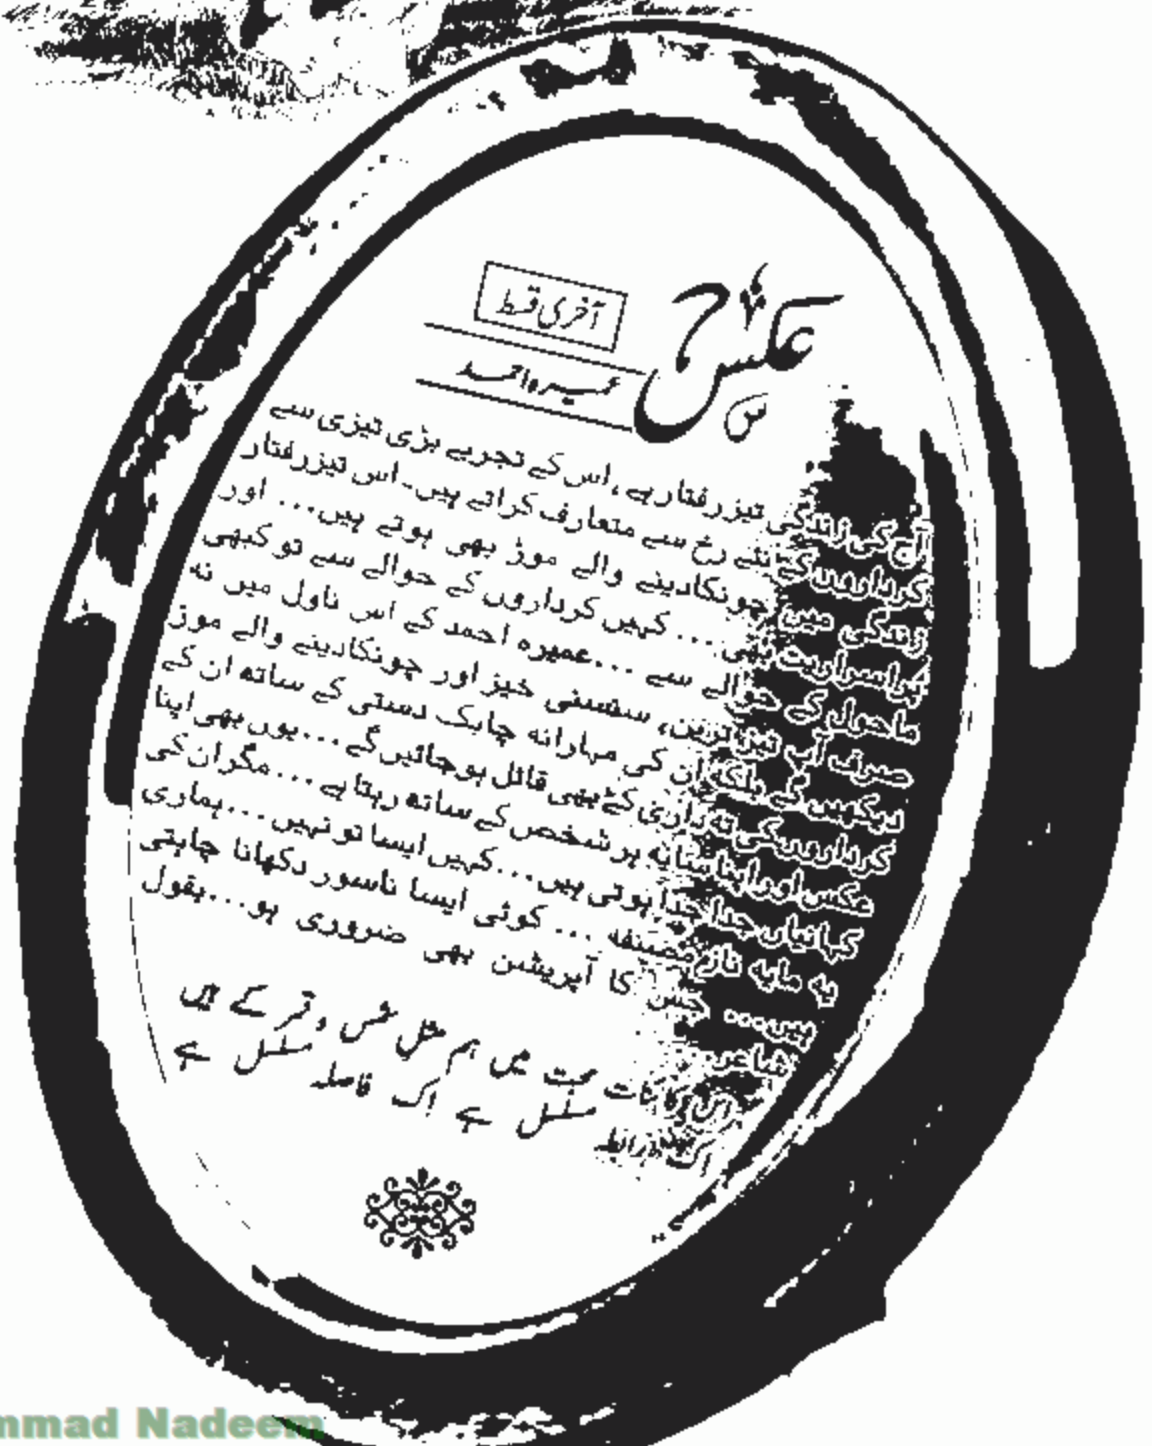 عکس
آخری قسط
عمیرہ احمد
آج کی زندگی تیز رفتار ہے، اس کے تجربے بڑی تیزی سے
کرداروں کے نئے رخ سے متعارف کراتے ہیں۔ اس تیز رفتار
زندگی میں چونکا دینے والے موڑ بھی ہوتے ہیں... اور
پراسراریت بھی... کہیں کرداروں کے حوالے سے تو کبھی
ماحول کے حوالے سے... عمیرہ احمد کے اس ناول میں نہ
صرف آپ تیز ترین، سنسنی خیز اور چونکا دینے والے موڑ
دیکھیں گے بلکہ ان کی مہارانہ چابک دستی کے ساتھ ان کے
کرداروں کی تہ داری کے بھی قائل ہو جائیں گے... یوں بھی اپنا
عکس اور اپنا سایہ ہر شخص کے ساتھ رہتا ہے... مگر ان کی
کہانیاں جدا جدا ہوتی ہیں... کہیں ایسا تو نہیں... ہماری
یہ مایہ ناز مصنفہ ... کوئی ایسا ناسور دکھانا چاہتی
ہیں... جس کا آپریشن بھی ضروری ہو... بقول
شاعر
اس کائنات محبت میں ہم مثل شمس و قمر کے ہیں
اک رابطہ مسلسل ہے اک فاصلہ مسلسل ہے
mmad Nadeem